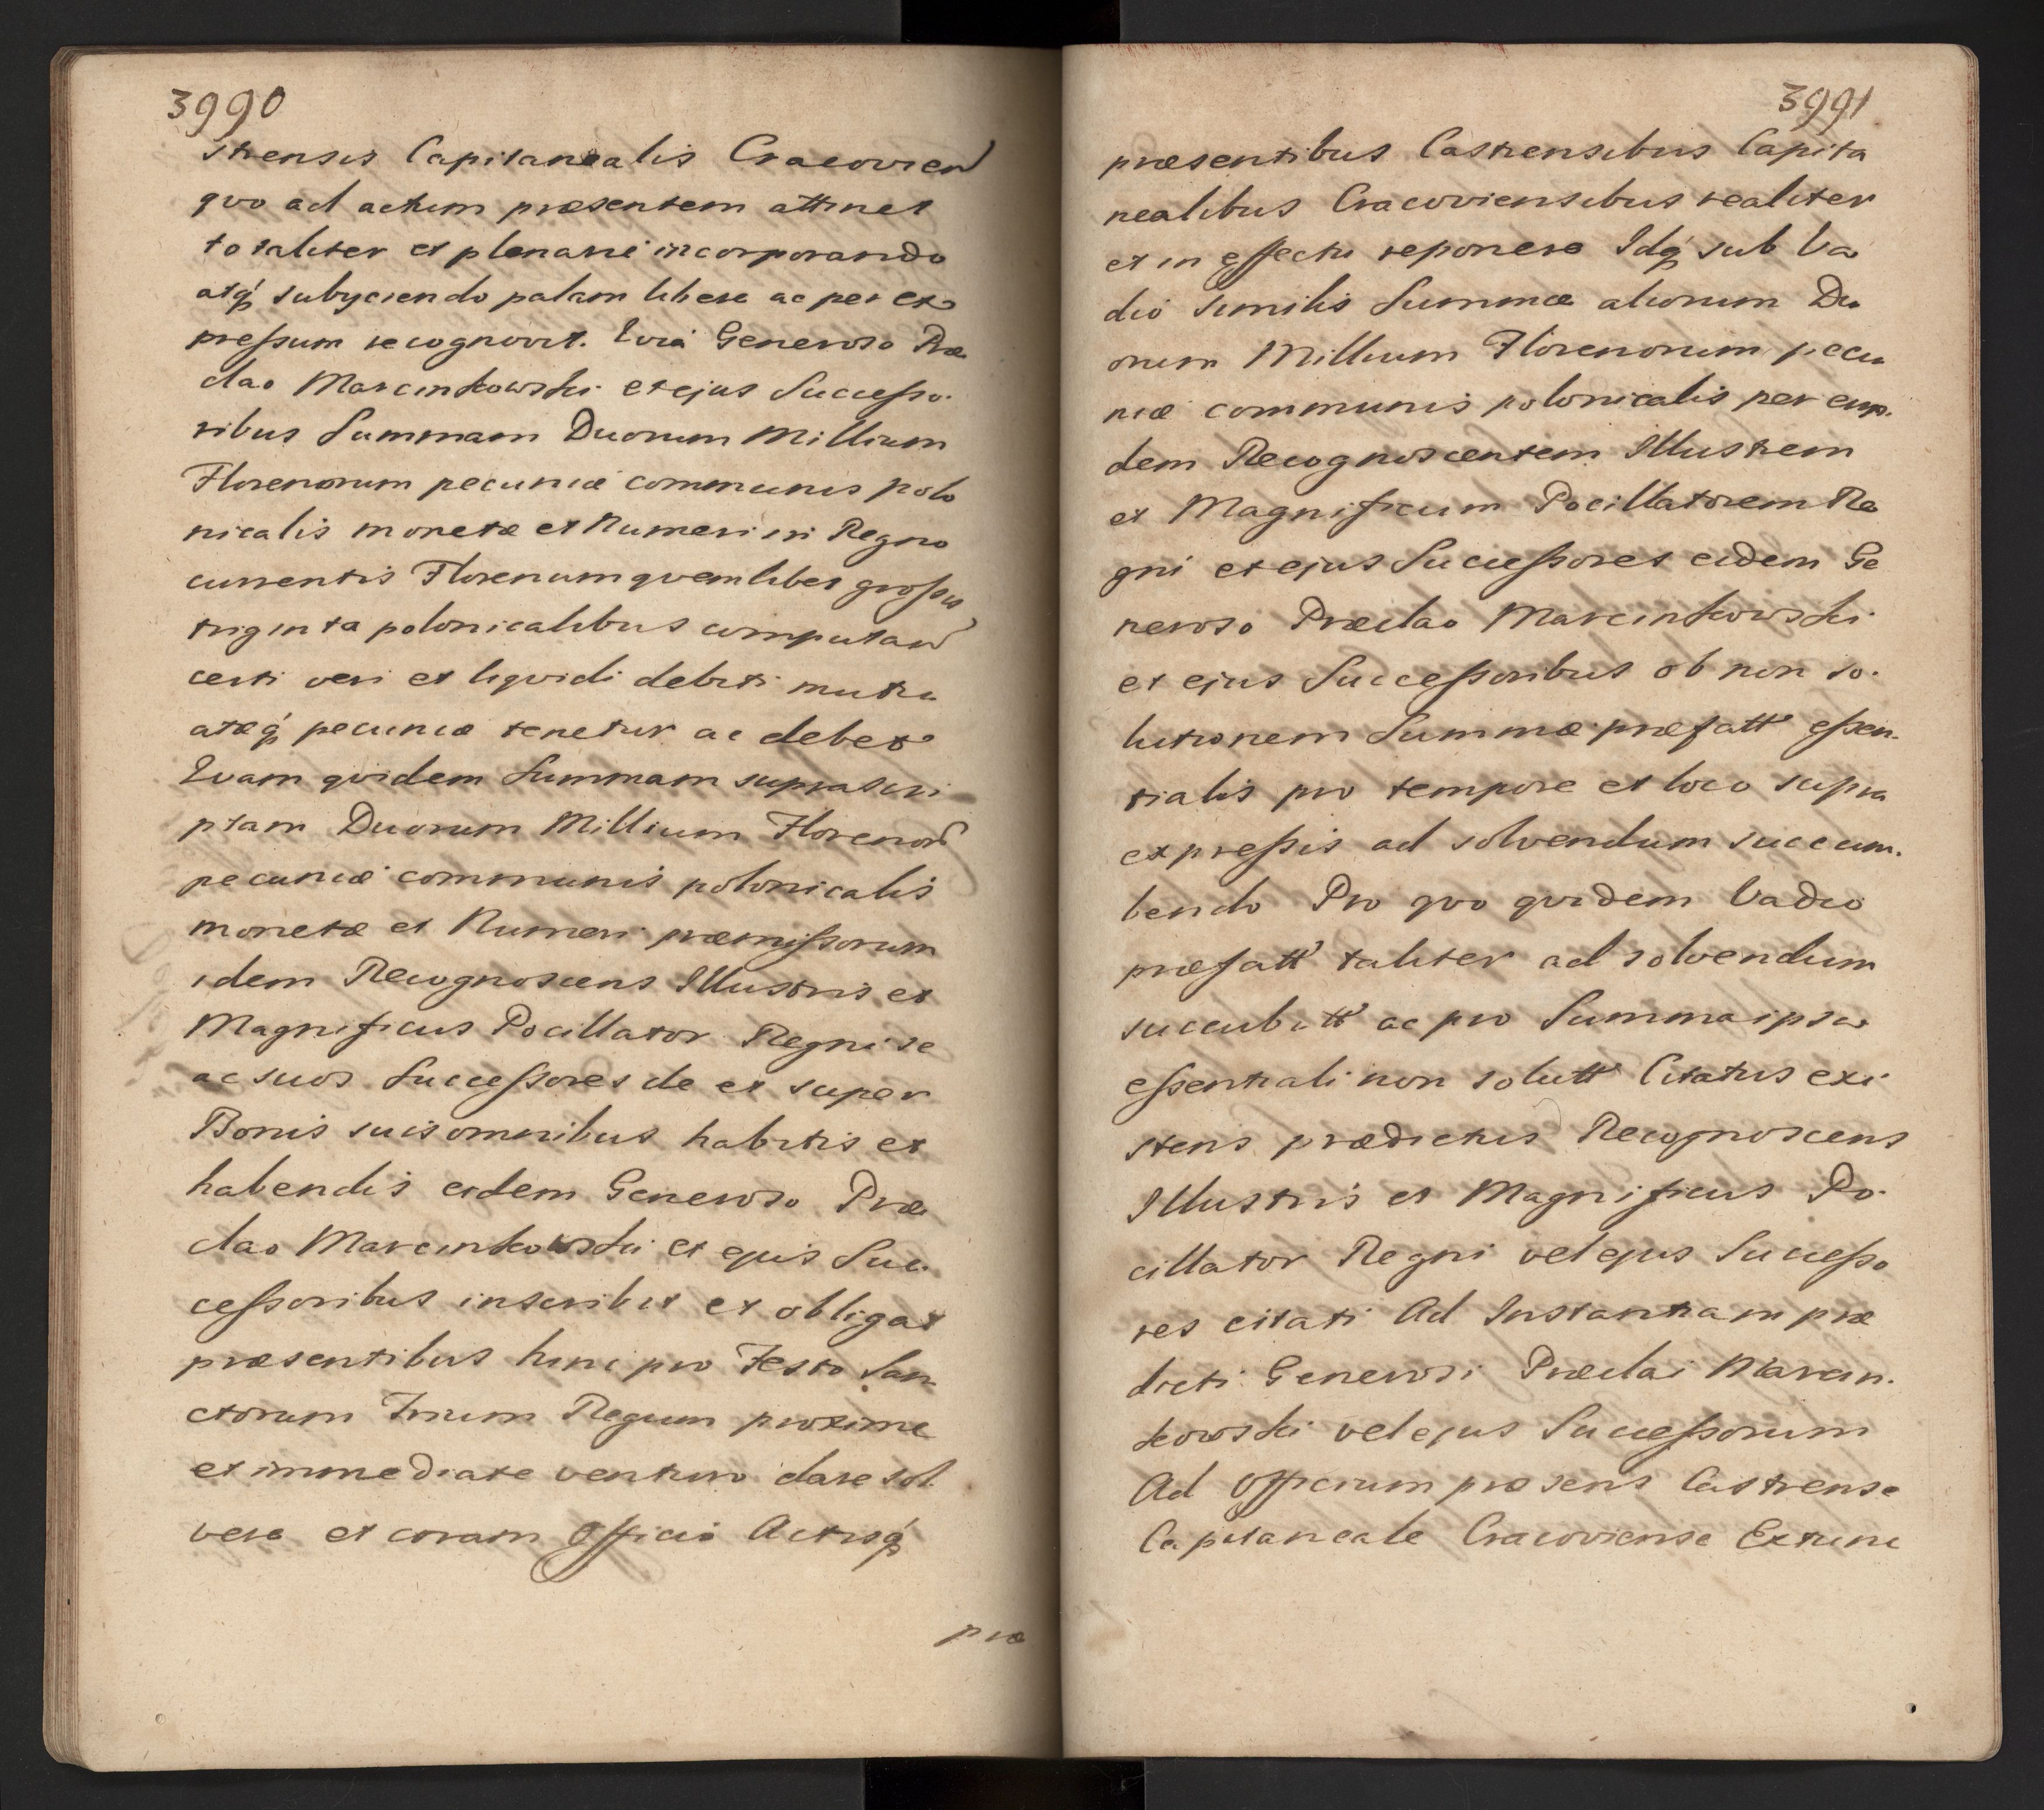 3990
strensis Capitanealis Cracovien
quo ad actum præsentem attinet
totaliter et plenarie incorporando
atq́ subyciendo palam libere ac per ex
pressum recognovit. Quia Generoso Præ
clao Marcinkowski et ejus Successo.
ribus Summam Duorum Millium
Florenorum pecuniæ communis polo
nicalis monetæ et Numeri in Regno
currentis Florenum quemlibet grossis
triginta polonicalibus computan
certi veri et liquidi debiti mutu
atæq́ pecuniæ tenetur ac debet
Quam quidem Summam suprascri
ptam Duorum Millium Florenor
pecuniæ communis polonicalis
monetæ et Numeri præmissorum
idem Recognoscens Illustris et
Magnificus Pocillator Regni se
ac suos Successores de et super
Bonis suis omnibus habitis et
habendis eidem Generoso Præ
clao Marcinkowski et ejus Suc
cessoribus inscribit et obligat
præsentibus hinc pro Festo San
ctorum Trium Regum proxime
et immediate venturo dare sol
vere et coram Officio Actisq́
præ
3991
præsentibus Castrensibus Capita
nealibus Cracoviensibus realiter
et in effectu reponere Idq́ sub Va
dio similis Summæ aliorum Du
orum Millium Florenorum pecu
niæ communis polonicalis per eun.
dem Recognoscentem Illustrem
et Magnificum Pocillatorem Re
gni et ejus Successores eidem Ge
neroso Præclao Marcinkowski
et ejus Successoribus ob non so.
lutionem Summæ præfatt essen.
tialis pro tempore et loco supra
expressis ad solvendum succum.
bendo Pro quo quidem Vadio
præfatt taliter ad solvendum
succubitt ac pro Summa ipsa
essentiali non solutt Citatus exi
stens prædictus Recognoscens
Illustris et Magnificus Po.
cillator Regni vel ejus Successo
res citati Ad Instantiam præ
dicti Generosi Præclai Marcin.
kowski vel ejus Successorum
Ad Officium præsens Castrense
Capitaneale Cracoviense Extunc